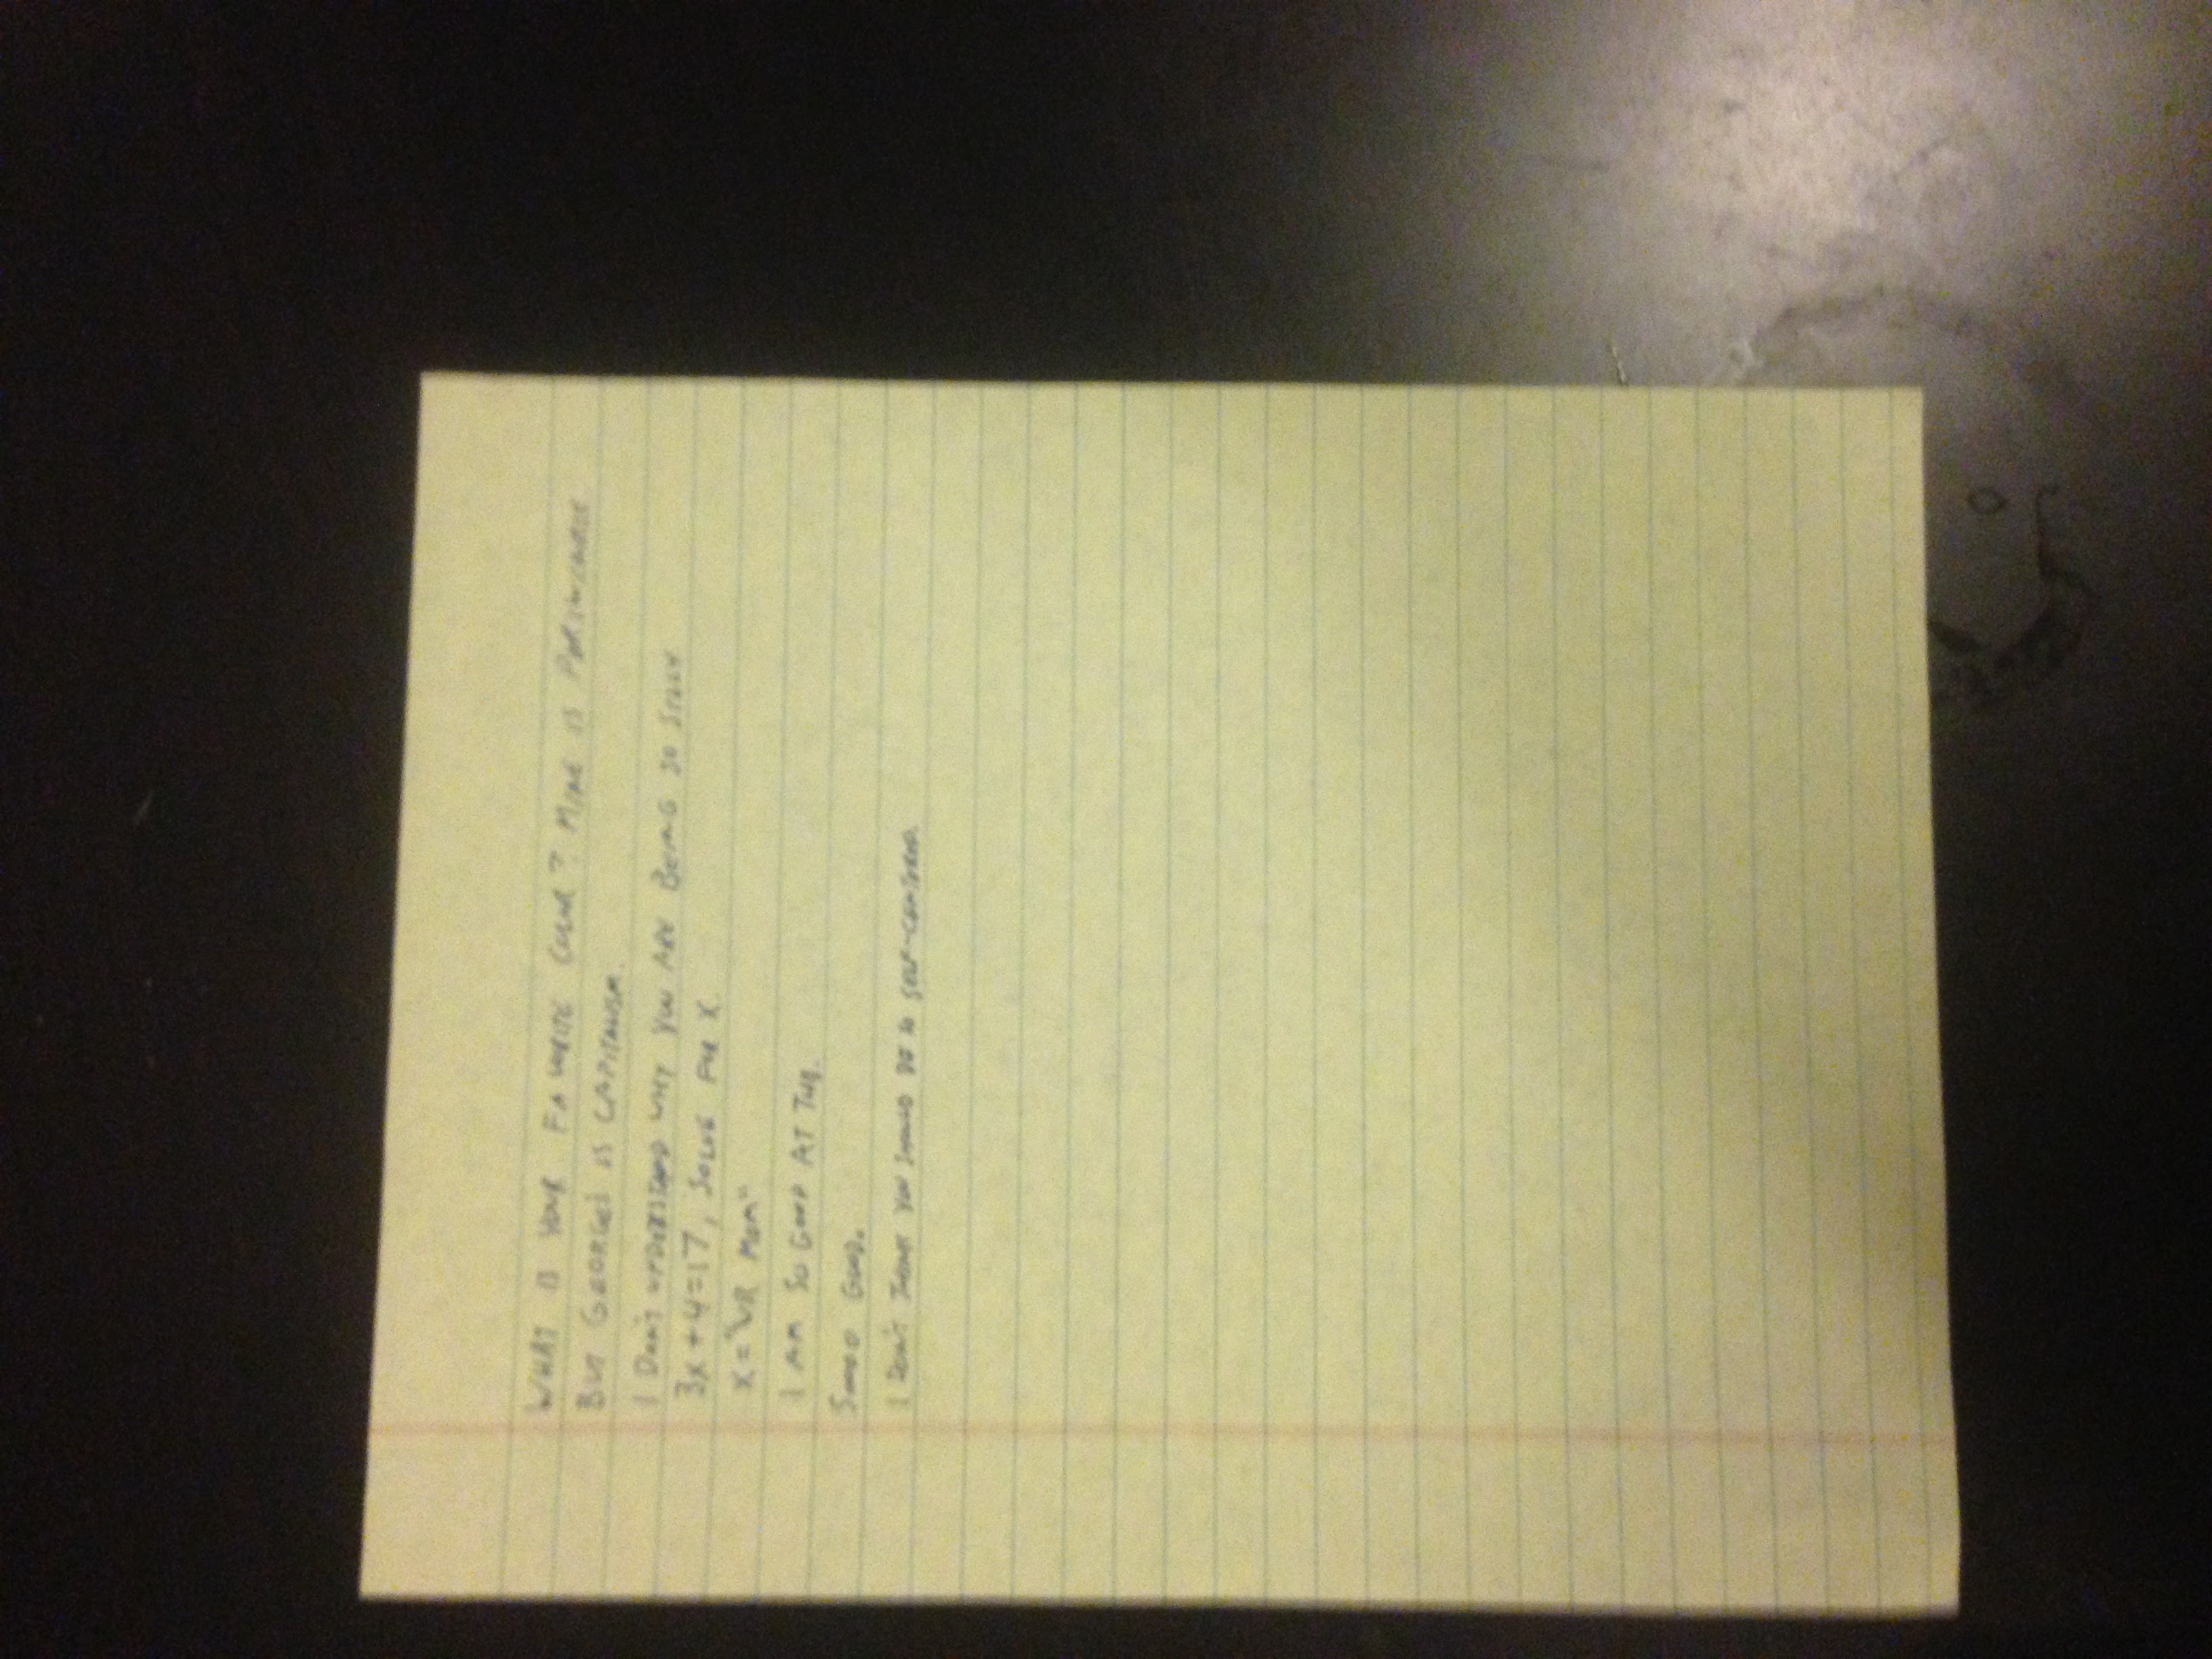 WHAT IS YOUR FAVORITE COLOR? MINE IS PERIWINKLE
BUT GEORGE'S IS CAPITALISM.
I DON'T UNDERSTAND WHY YOU ARE BEING SO SILLY
3x+4=17, SOLVE FOR X.
X="UR MOM"
I AM SO GOOD AT THIS.
SOOOO GOOD.
I DON'T THINK YOU SHOULD BE SO SELF-CENTERED.